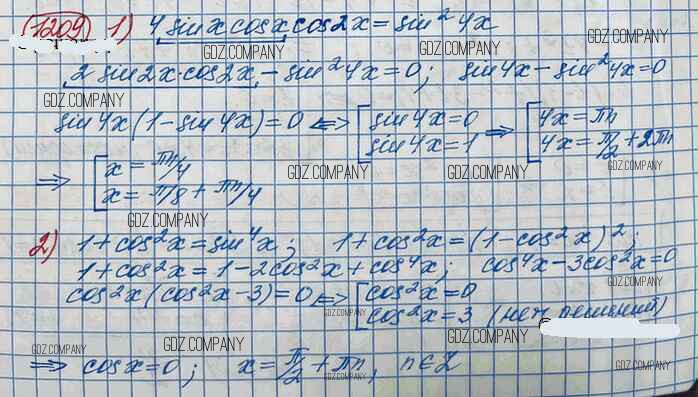 1209 1) 4 sinx cosx cos2x = sin²4x
GDZ.COMPANY GDZ.COMPANY
2 sin2x·cos2x - sin²4x = 0; sin4x - sin²4x = 0
GDZ.COMPANY
sin4x(1 - sin4x) = 0 <=> [ sin4x = 0 => [ 4x = πn
sin4x = 1 4x = π/2 + 2πn
GDZ.COMPANY GDZ.COMPANY GDZ.COMPANY
=> [ x = πn/4
x = π/8 + πn/4
GDZ.COMPANY
2) 1 + cos²x = sin⁴x; 1 + cos²x = (1 - cos²x)²;
1 + cos²x = 1 - 2cos²x + cos⁴x; cos⁴x - 3cos²x = 0
GDZ.COMPANY
cos²x(cos²x - 3) = 0 <=> [ cos²x = 0
cos²x = 3 (нет решений)
GDZ.COMPANY GDZ.COMPANY GDZ.COMPANY GDZ.COMPANY
=> cosx = 0; x = π/2 + πn, n∈Z
GDZ.COMPANY GDZ.COMPANY